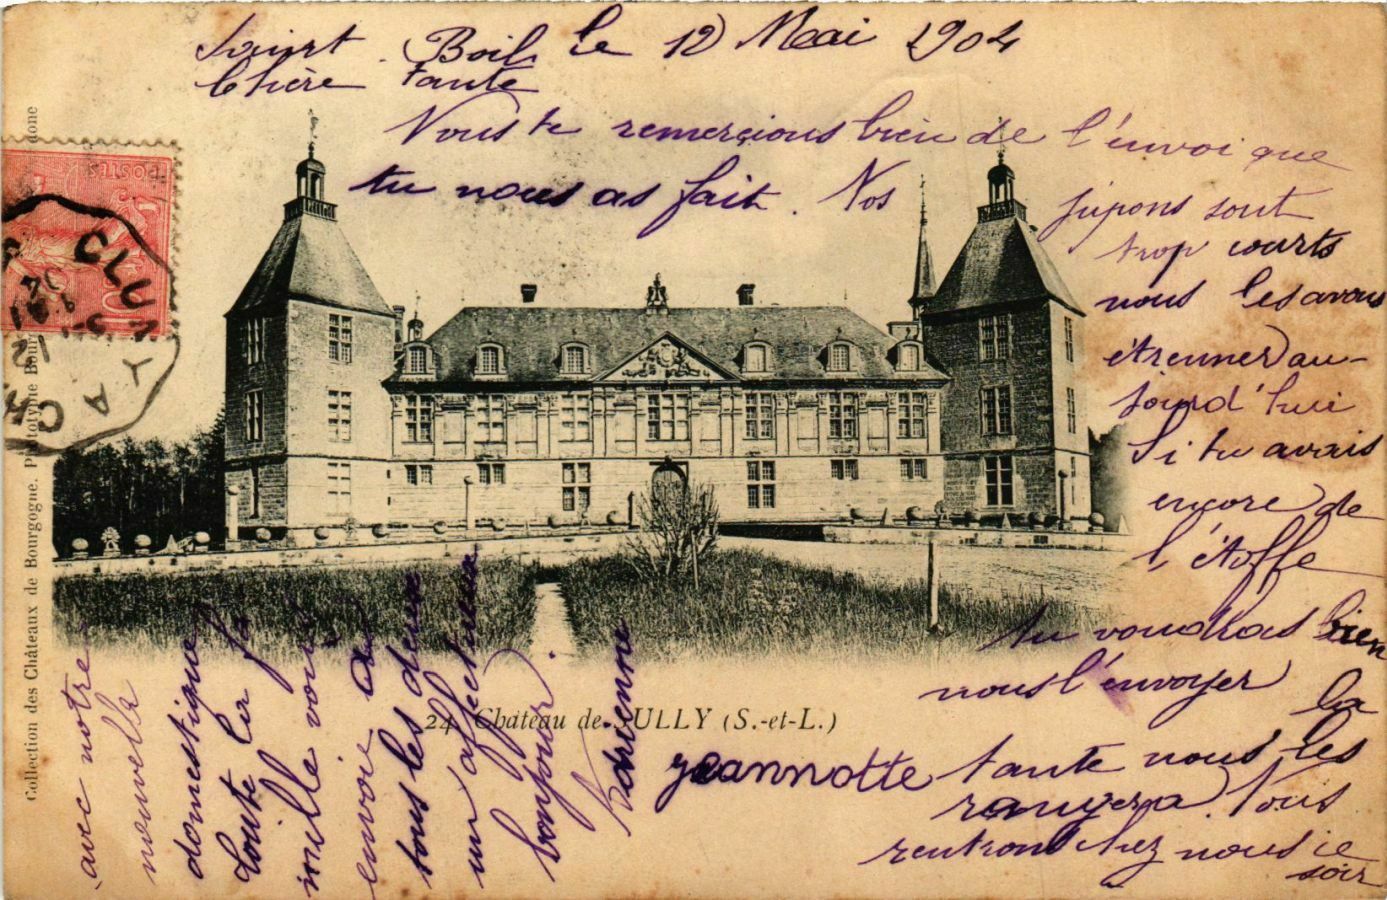 Saint Boil le 12 Mai 1904
Chère Tante
Nous te remerçions bien de l'envoi que
tu nous as fait. Nos jupons sont
trop courts
nous les avons
étrenner au-
jourd'hui
Si tu avais
encore de
l'étoffe
tu voudras bien
nous l'envoyer
la
tante nous les
rangera. Nous
rentrons chez nous ce
soir
avec notre
nouvelle
domestique
toute la fa
mille vous
envoie à
tous les deux
un affectueux
bonjour.
Adrienne
Jeannotte
24. Château de SULLY (S.-et-L.)
Collection des Châteaux de Bourgogne.
POSTES
CLUNY A CH
12
MAI
04